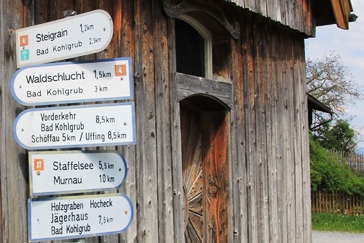 4
7
Steigrain 1,2 km
Bad Kohlgrub 2 km
Waldschlucht 1,5 km 4
Bad Kohlgrub 3 km
Vorderkehr
Bad Kohlgrub 8,5 km
Schöffau 5 km / Uffing 8,5 km
Staffelsee 5,5 km
Murnau 10 km
Holzgraben Hocheck
Jägerhaus
Bad Kohlgrub 7,5 km